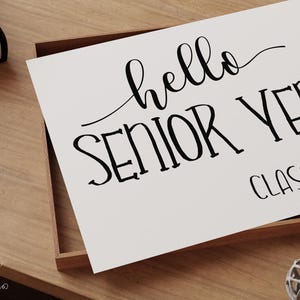 hello
SENIOR YE
CLAS